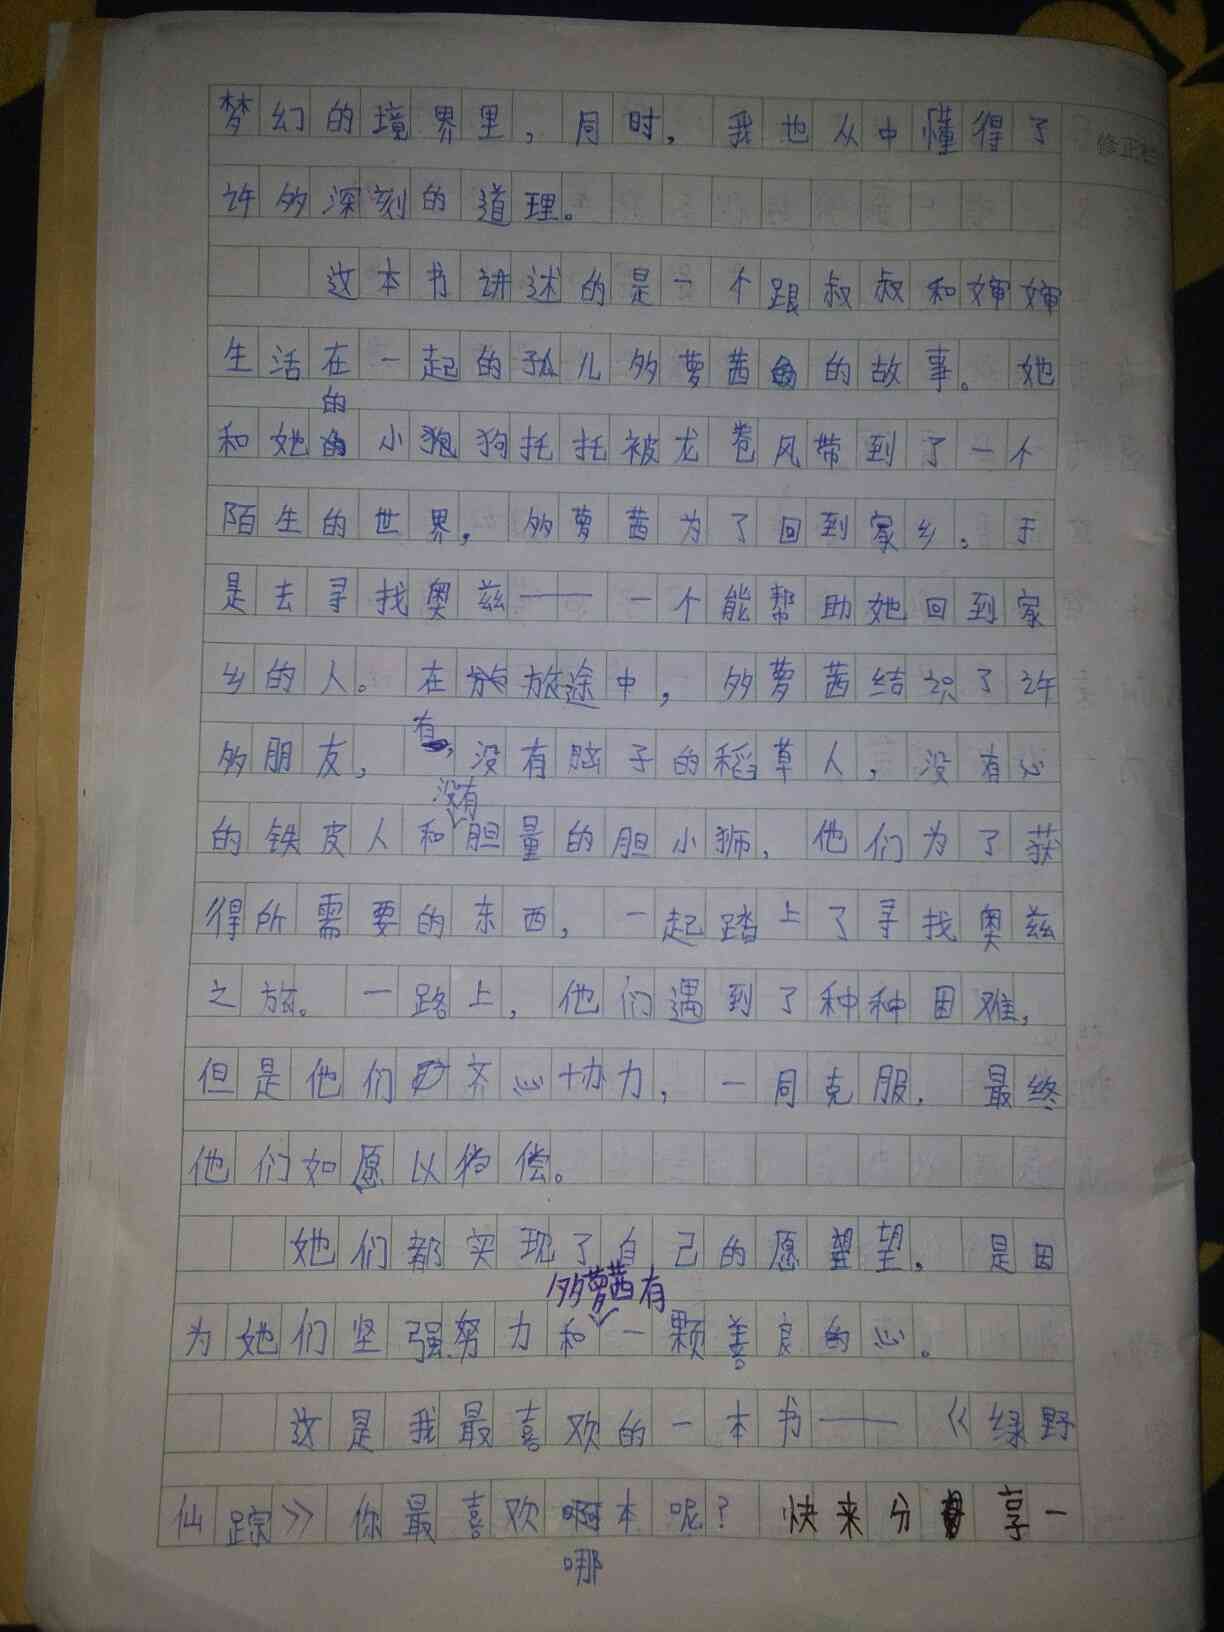 修正栏
梦幻的境界里，同时，我也从中懂得了
许多深刻的道理。
这本书讲述的是一个跟叔叔和婶婶
生活在一起的孤儿多萝茜的故事。她
的
和她小狗托托被龙卷风带到了一个
陌生的世界，多萝茜为了回到家乡。于
是去寻找奥兹——一个能帮助她回到家
乡的人。在旅途中，多萝茜结识了许
多朋友，有，没有脑子的稻草人，没有心
没有
的铁皮人和胆量的胆小狮，他们为了获
得所需要的东西，一起踏上了寻找奥兹
之旅。一路上，他们遇到了种种困难，
但是他们齐心协力，一同克服．最终
他们如愿以偿。
她们都实现了自己的愿望，是因
多萝茜有
为她们坚强努力和一颗善良的心。
这是我最喜欢的一本书——《绿野
仙踪》你最喜欢本呢？快来分享一
哪